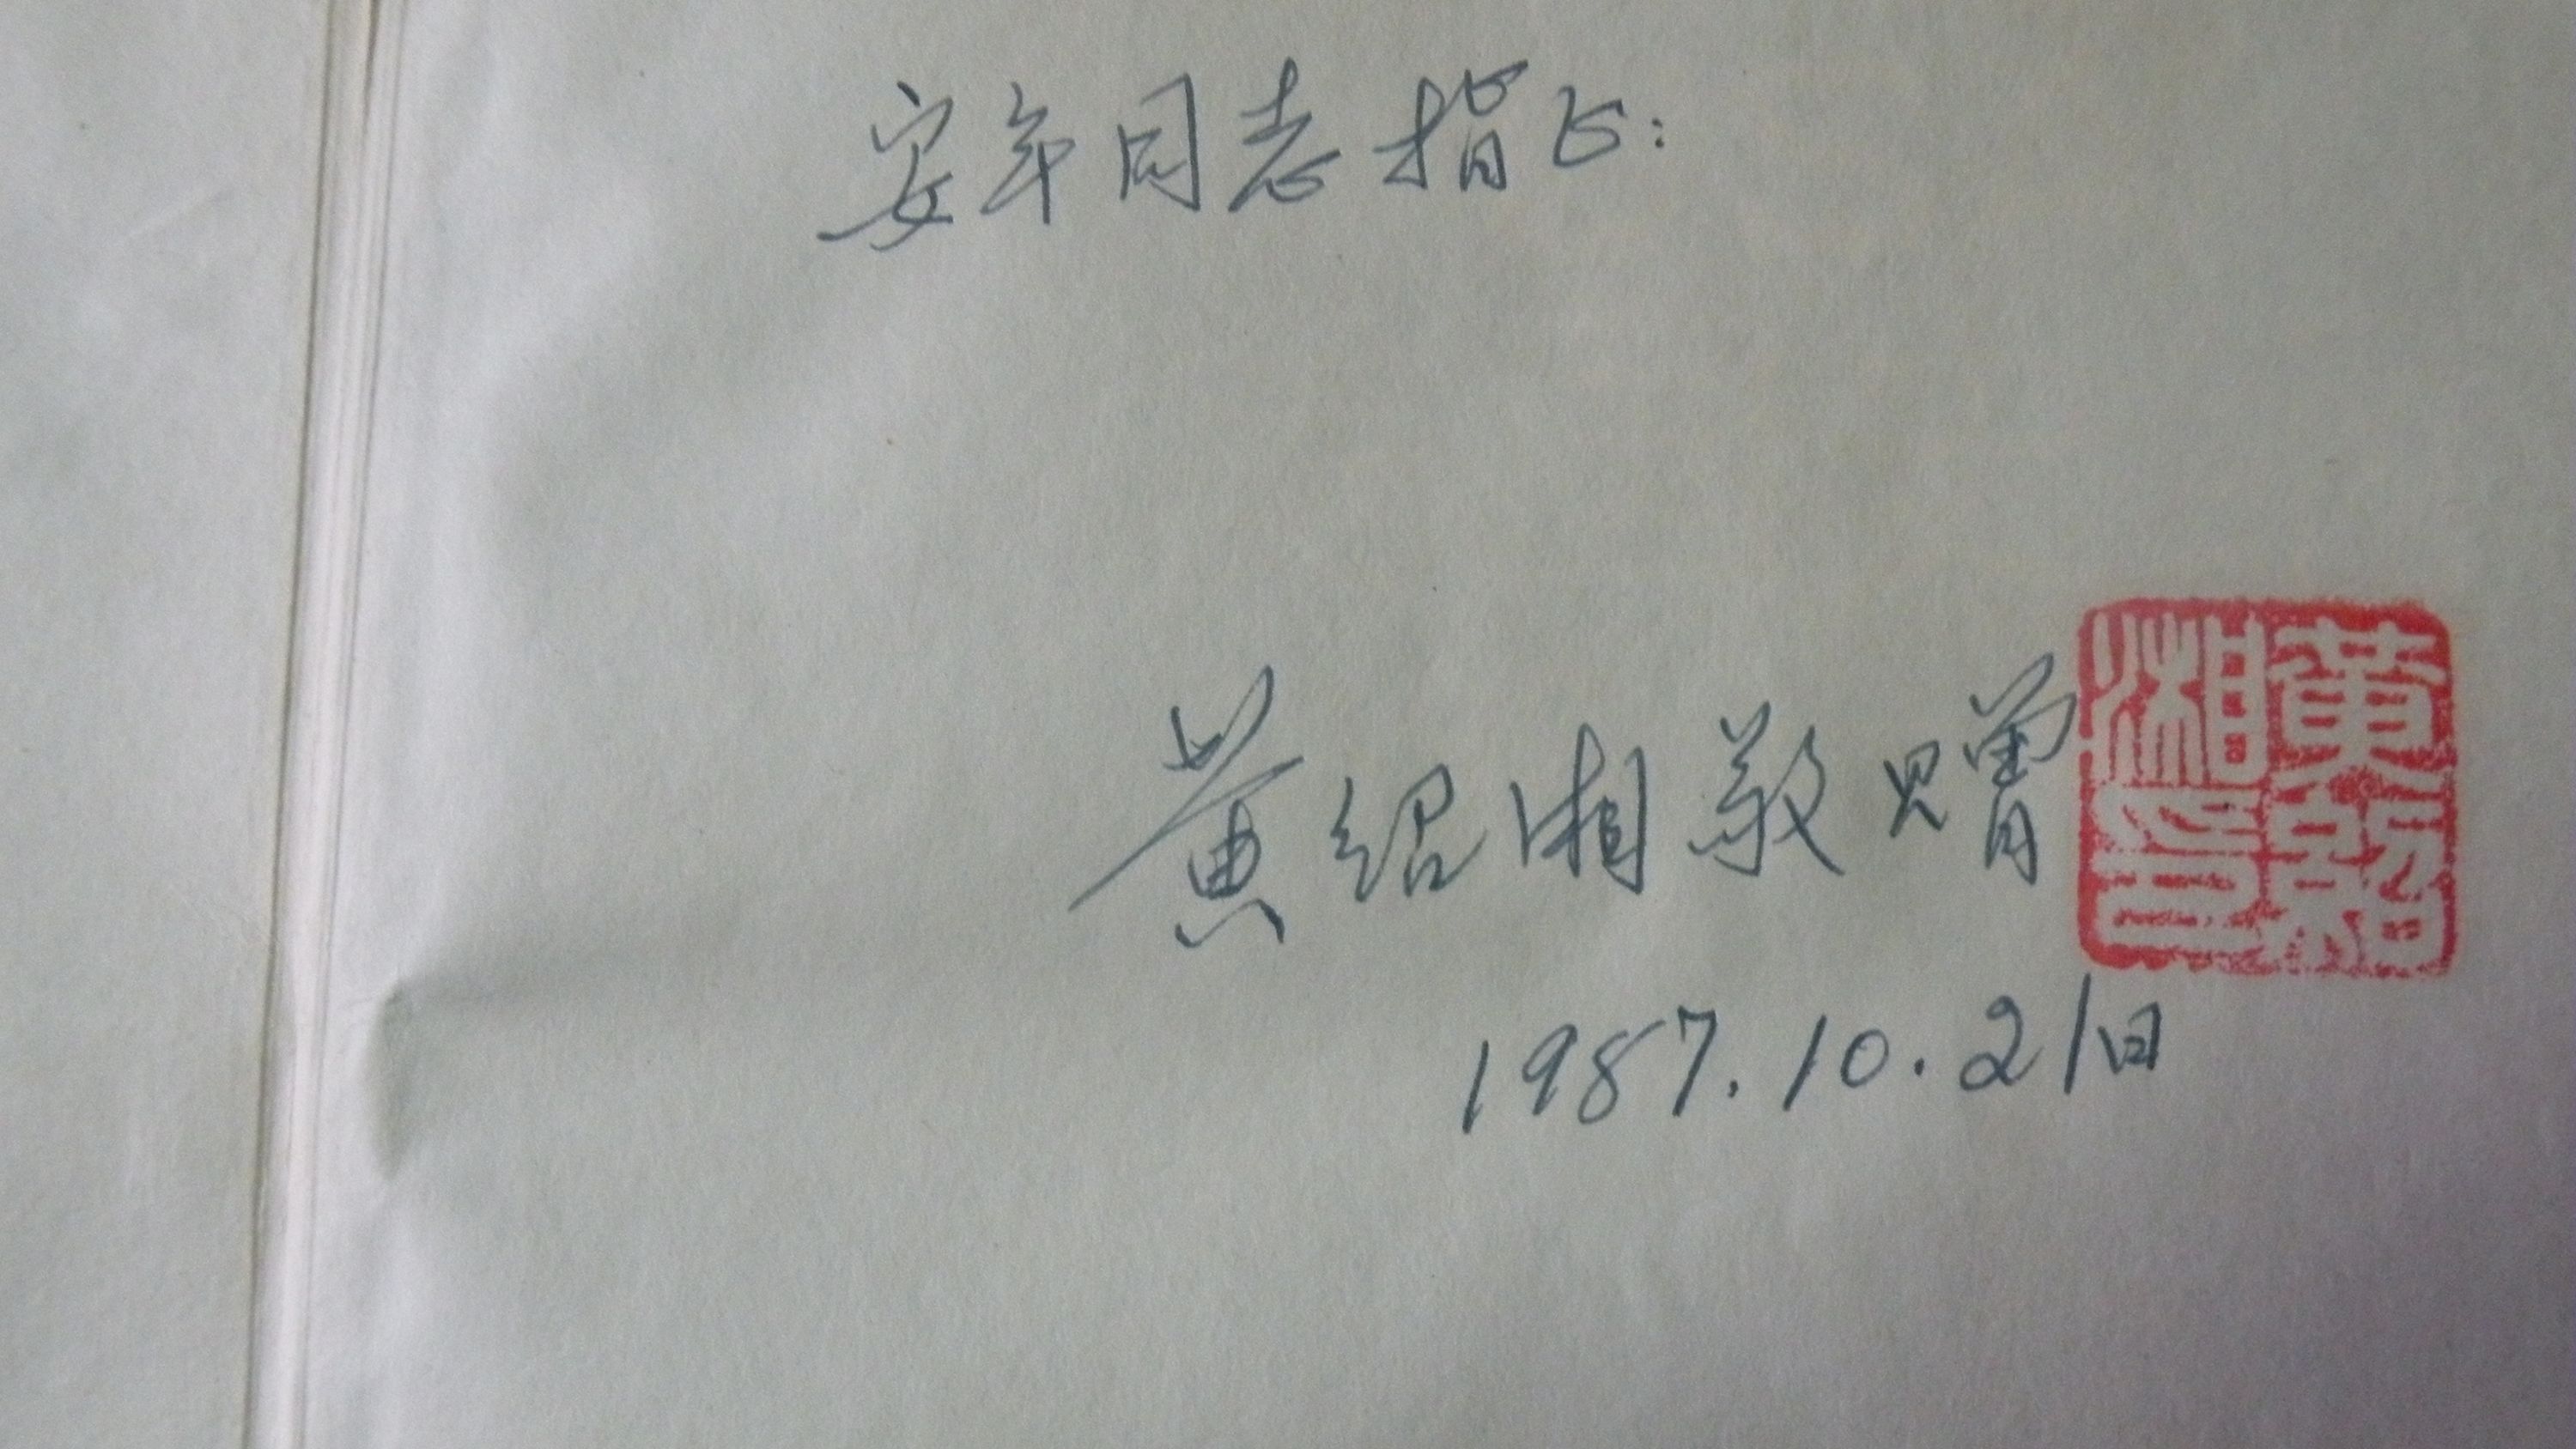 安年同志指正：
黄绍湘敬赠
黄绍湘印
1987.10.21日